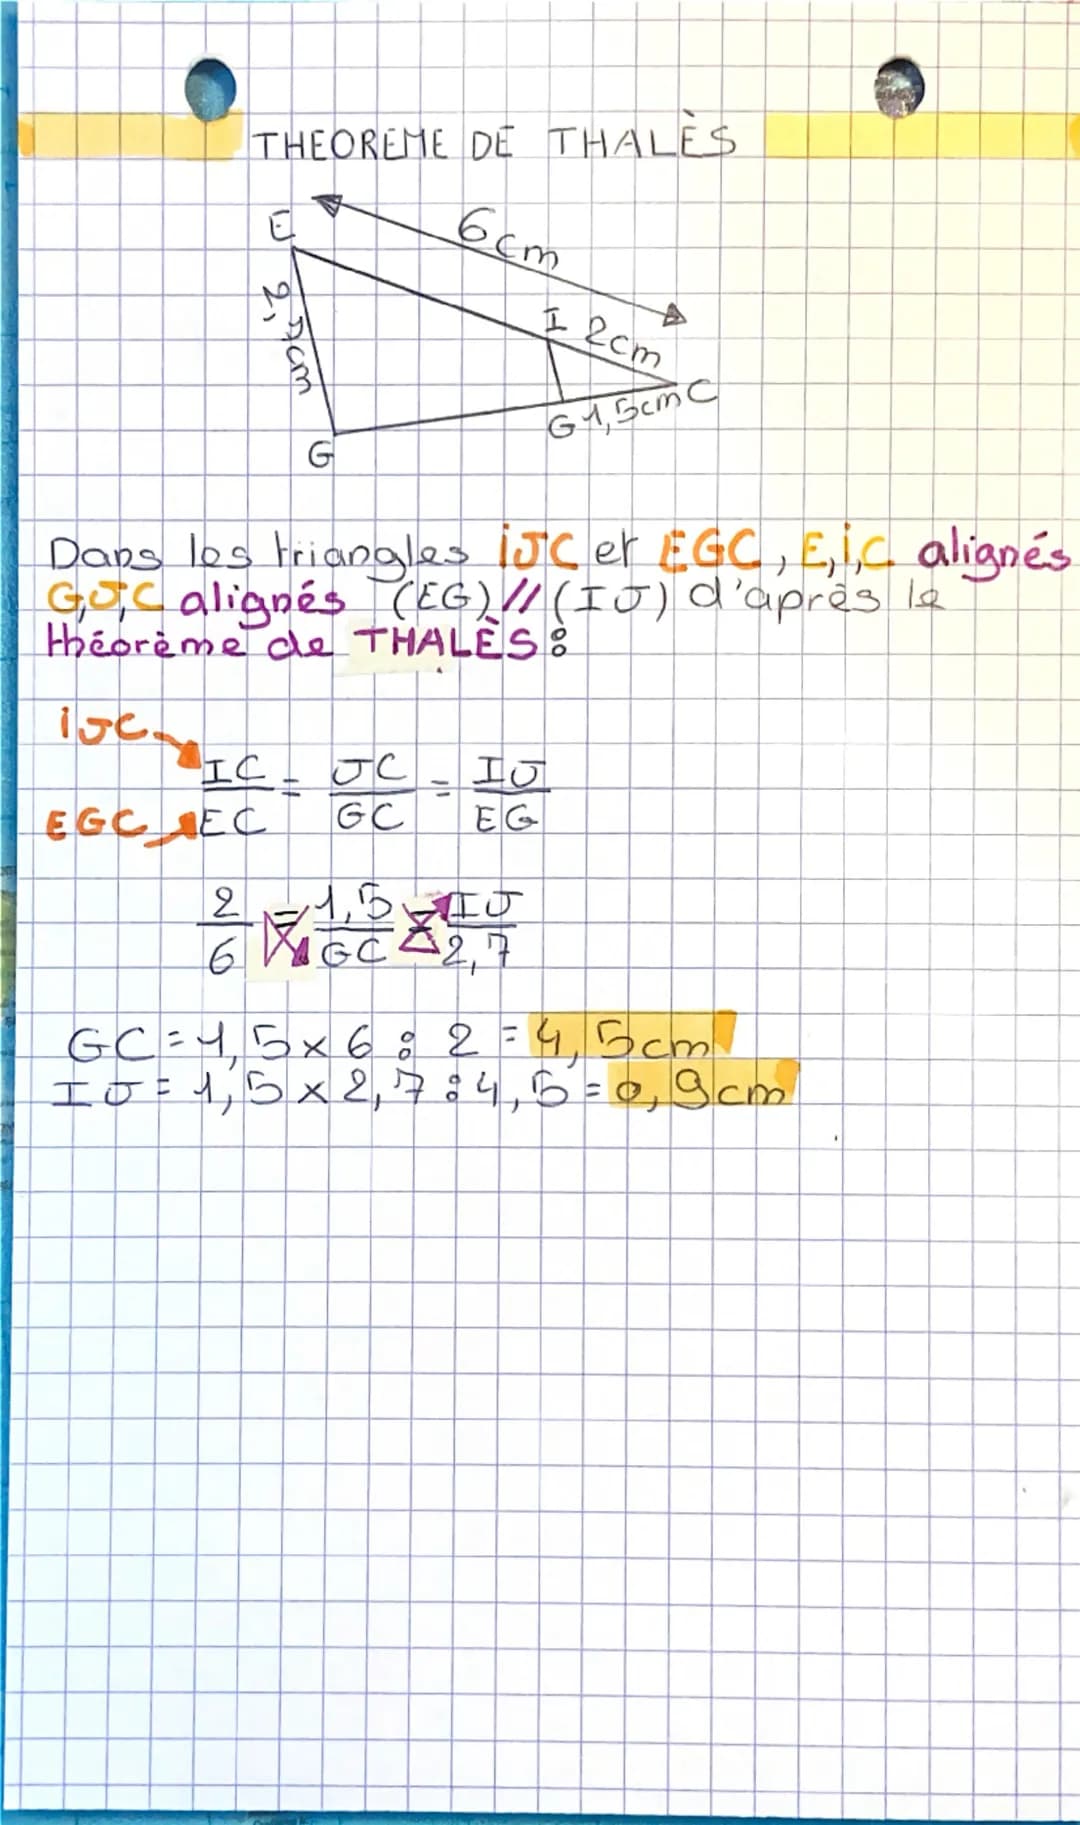 THEOREME DE THALÈS
E
6cm
2,7cm
I 2cm
C
G 1,5cm
G
Dans les triangles iJC et EGC, E,i,C alignés
G,J,C alignés (EG) // (IJ) d'après le
théorème de THALÈS :
iJC
IC = JC = IJ
EGC EC GC EG
2 = 1,5 = IJ
6 GC 2,7
GC = 1,5 x 6 : 2 = 4,5cm
IJ = 1,5 x 2,7 : 4,5 = 0,9cm